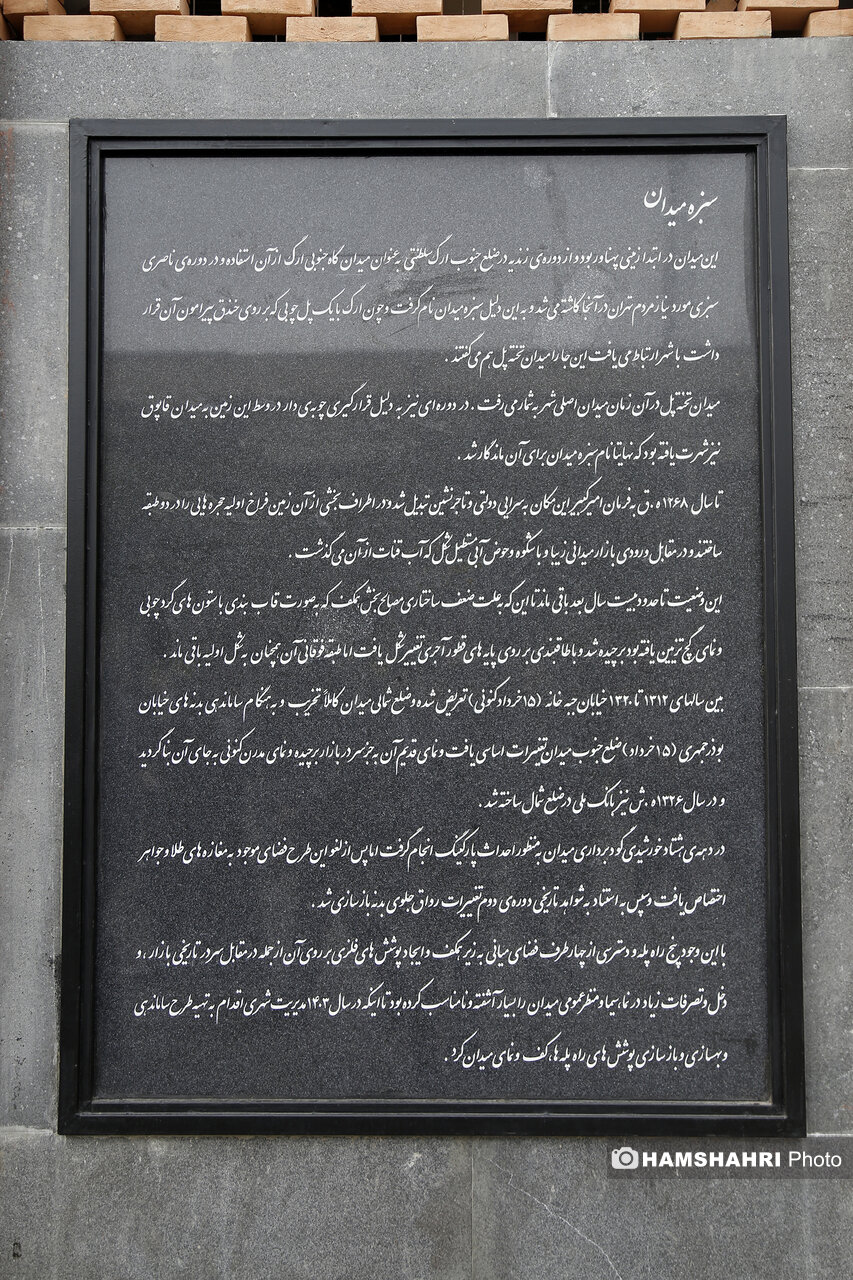 سبزه میدان
این میدان در ابتدا زمینی پهناور بود و از دوره‌ی زندیه در ضلع جنوب ارگ سلطنتی به عنوان میدان گاه جنوبی ارگ از آن استفاده و در دوره‌ی ناصری
سبزی مورد نیاز مردم تهران در آنجا کاشته می‌شد و به این دلیل سبزه میدان نام گرفت و چون ارگ با یک پل چوبی که بر روی خندق پیرامون آن قرار
داشت با شهر ارتباط می یافت این جا را میدان تخته پل هم می‌گفتند .
میدان تخته پل در آن زمان میدان اصلی شهر به شمار می رفت . در دوره ای نیز به دلیل قرار گیری چوبه ی دار در وسط این زمین به میدان قاپوق
نیز شهرت یافته بود که نهایتا نام سبزه میدان برای آن ماندگار شد .
تا سال ۱۲۶۸ ه .ق به فرمان امیرکبیر این مکان به سرایی دولتی و تاجر نشین تبدیل شد و در اطراف بخشی از آن زمین فراخ اولیه حجره هایی را در دو طبقه
ساختند و در مقابل ورودی بازار میدانی زیبا و با شکوه و حوض آبی مستطیل شکل که آب قنات از آن می گذشت .
این وضعیت تا حدود بیست سال بعد باقی ماند تا این که به علت ضعف ساختاری مصالح بخش همکف که به صورت قاب بندی با ستون های گرد چوبی
و نمای گچ تزیین یافته بود برچیده شد و با طاقبندی بر روی پایه های قطور آجری تغییر شکل یافت اما طبقه فوقانی آن همچنان به شکل اولیه باقی ماند .
بین سالهای ۱۳۱۲ تا ۱۳۲۰ خیابان جبه خانه (۱۵ خرداد کنونی) تعریض شده و ضلع شمالی میدان کاملاً تخریب و به هنگام ساماندهی بدنه های خیابان
بوذرجمهری (۱۵ خرداد) ضلع جنوب میدان تغییرات اساسی یافت و نمای قدیم آن به جز سردر بازار برچیده و نمای مدرن کنونی به جای آن بنا گردید
و در سال ۱۳۲۶ ه .ش نیز بانک ملی در ضلع شمال ساخته شد .
در دهه ی هشتاد خورشیدی گودبرداری میدان به منظور احداث پارکینگ انجام گرفت اما پس از لغو این طرح فضای موجود به مغازه های طلا و جواهر
اختصاص یافت و سپس به استناد به شواهد تاریخی دوره ی دوم تغییرات رواق جلوی بدنه بازسازی شد .
با این وجود پنج راه پله و دسترسی از چهار طرف فضای میانی به زیر همکف و ایجاد پوشش های فلزی بر روی آن از جمله در مقابل سردر تاریخی بازار ، و
دخل و تصرفات زیاد در نما، سیما و منظر عمومی میدان را بسیار آشفته و نامناسب کرده بود تا اینکه در سال ۱۴۰۳ مدیریت شهری اقدام به تهیه طرح ساماندهی
و بهسازی و بازسازی پوشش های راه پله ها، کف و نمای میدان کرد .
HAMSHAHRI Photo